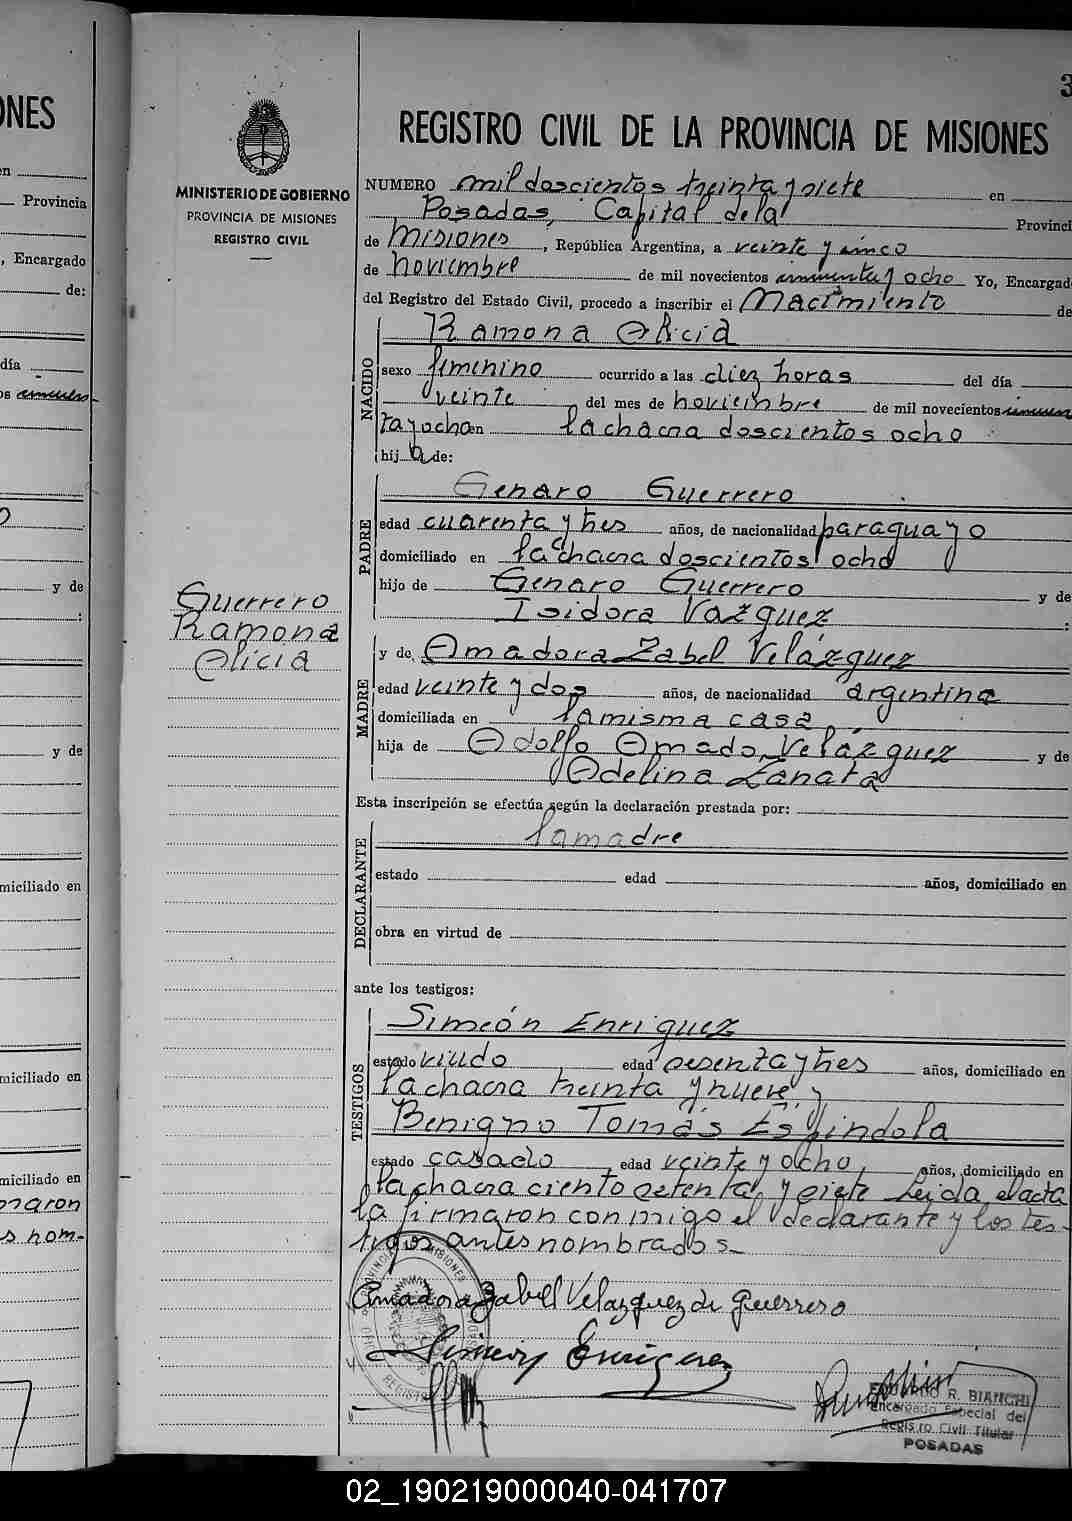 3
REGISTRO CIVIL DE LA PROVINCIA DE MISIONES
MINISTERIO DE GOBIERNO
PROVINCIA DE MISIONES
REGISTRO CIVIL
NUMERO mil doscientos treinta y siete en
Posadas, Capital de la Provinci
de Misiones, República Argentina, a veinte y cinco
de noviembre de mil novecientos cincuenta y ocho Yo, Encargad
del Registro del Estado Civil, procedo a inscribir el Nacimiento de
NACIDO
Ramona Alicia
sexo femenino ocurrido a las diez horas del día
veinte del mes de noviembre de mil novecientos cincuen
ta y ocho en la chacra doscientos ocho
hija de:
PADRE
Genaro Guerrero
edad cuarenta y tres años, de nacionalidad paraguayo
domiciliado en la chacra doscientos ocho
hijo de Genaro Guerrero y de
Isidora Vazquez :
Guerrero
Ramona
Alicia
MADRE
y de Amadora Zabel Velázquez
edad veinte y dos años, de nacionalidad argentina
domiciliada en la misma casa
hija de Adolfo Amado Velázquez y de
Adelina Zanata
Esta inscripción se efectúa según la declaración prestada por:
DECLARANTE
la madre
estado edad años, domiciliado en
obra en virtud de
ante los testigos:
TESTIGOS
Simeón Enriquez
estado viudo edad sesenta y tres años, domiciliado en
la chacra treinta y nueve, y
Benigno Tomás Espíndola
estado casado, edad veinte y ocho, años, domiciliado en
la chacra ciento setenta y siete Leida el acta
la firmaron conmigo el declarante y los tes-
tigos antes nombrados.-
Amadora Zabel Velazquez de Guerrero
Simeon Enriquez
EDUARDO R. BIANCHI
Encargado Especial del
Registro Civil Titular
POSADAS
ONES
en
Provincia
, Encargado
de:
día
os cincuen-
y de
:
y de
miciliado en
miciliado en
miciliado en
maron
s nom-
02_190219000040-041707